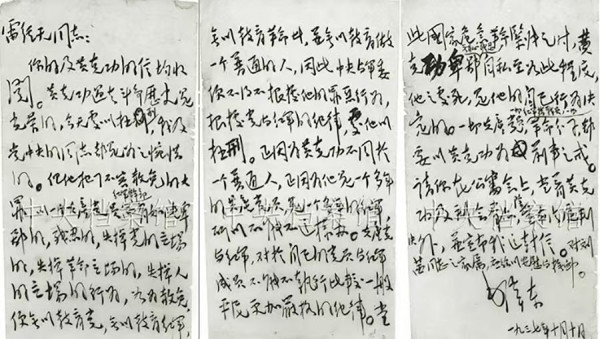 雷经天同志:
你的及黄克功的信均收
阅。黄克功过去斗争历史是
光荣的,今天处以极刑,我及
党中央的同志都是为之惋惜
的。但他犯了不容赦免的大
罪,以一个共产党员红军干
部而有如此卑鄙的,残忍的,失掉党的立场
的,失掉革命立场的,失掉人
的立场的行为,如为赦免,
便无以教育党,无以教育红军,
无以教育革命者,并无以教育做
一个普通的人,因此中央与军委
便不得不根据他的罪恶行为,
根据党与红军的纪律,处他以
极刑。正因为黄克功不同于
一个普通人,正因为他是一个多年
的共产党员,是一个多年的红军,
所以不能不这样办。共产党
与红军,对于自己的党员与红军
成员不能不执行比较一般
平民更加严格的纪律。当
此国家危急革命紧张之时,黄
克功卑鄙无耻残忍自私至如此程度,
他之处死,是他的自己行为决
定的。一切共产党员,一切红军指战员,一切革命分子,都
要以黄克功为前车之戒。
请你在公审会上,当着黄克
功及到会群众,除宣布法庭判
决外,并宣布我这封信。对刘
茜同志之家属,应给以安慰与抚恤。
毛泽东
一九三七年十月十日